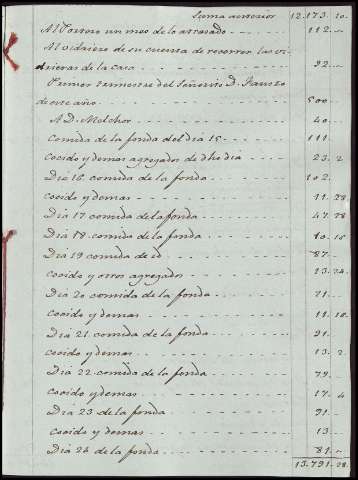 Suma anterior 12.173. 20.
Al Portero un mes de lo atrasado 112. "
Al vidriero de su cuenta de recorrer las vi-
drieras de la casa 92. "
Primer trimestre del Señorito D. Fausto
de este año 500
A D. Melchor 40. "
Comida de la fonda del dia 15 111. "
Cocido y demas agregados de dho dia 23. 2
Dia 16 comida de la fonda 102. "
cocido y demas 11. 28
Dia 17 comida de la fonda 47. 28
Dia 18 comida de la fonda 10. 15
Dia 19 comida de id 87. "
Cocido y otros agregados 13. 24.
Dia 20 comida de la fonda 71. "
Cocido y demas 11. 10.
Dia 21 comida de la fonda 91. "
cocido y demas 13. 2
Dia 22 comida de la fonda 79. "
Cocido y demas 17. 4
Dia 23 de la fonda 91. "
cocido y demas 13. "
Dia 24 de la fonda 81. "
13.791. 28.